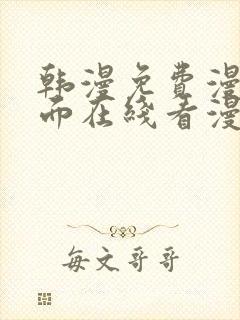 韩漫免费漫
而在线看漫
每文哥哥